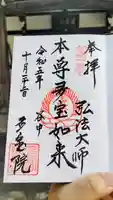 奉拝
弘法大師
本尊多宝如来
谷中
令和五年
十月二十一日
多宝院